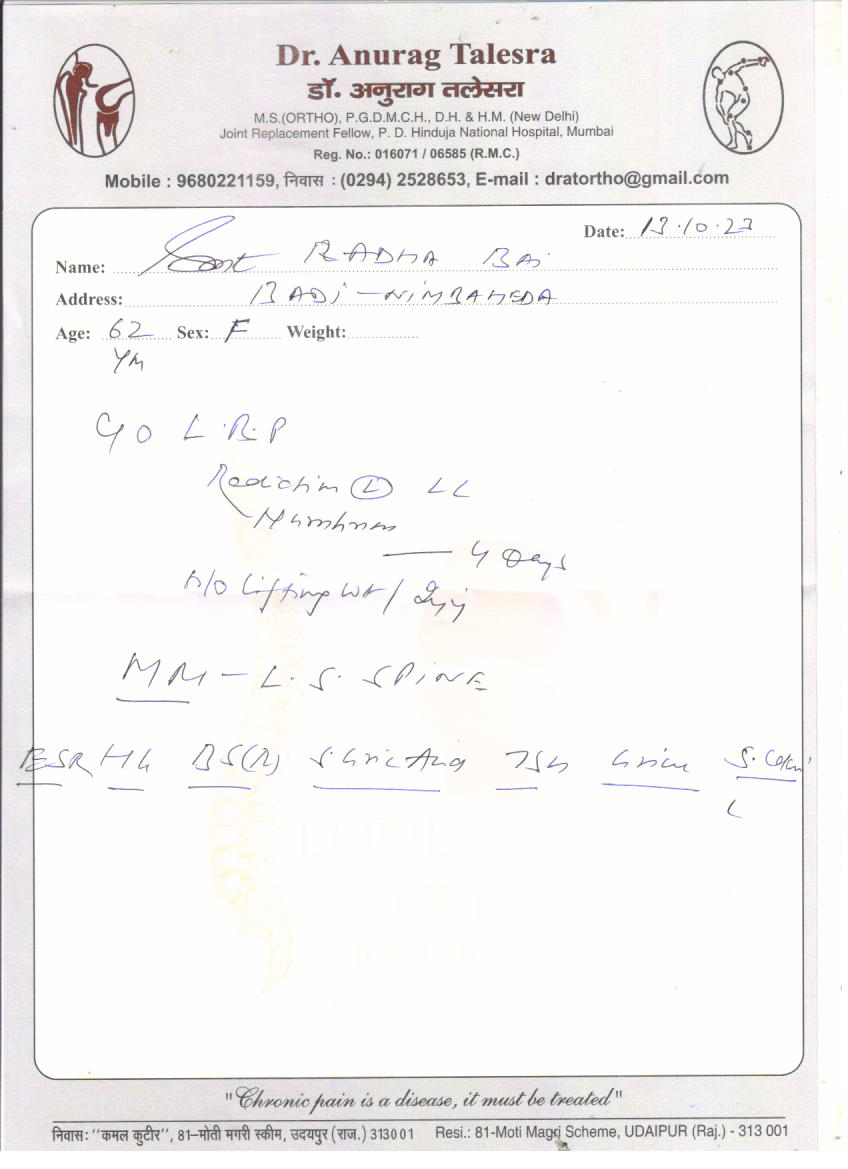 Dr. Anurag Talesra
डॉ. अनुराग तलेसरा
M.S.(ORTHO), P.G.D.M.C.H., D.H. & H.M. (New Delhi)
Joint Replacement Fellow, P. D. Hinduja National Hospital, Mumbai
Reg. No.: 016071 / 06585 (R.M.C.)
Mobile : 9680221159, निवास : (0294) 2528653, E-mail : dratortho@gmail.com
Date: 13.10.23
Name: RADHA BAI
Address: BADI - NIMBAHEDA
Age: 62 Sex: F Weight:
C/O L.B.P
Radiation (L) LL
Numbness
4 Days
H/O Lifting wt / Injy
MRI - L.S. SPINE
ESR Hb BS(R) S. Uric Acid TSH Urine S. Calci
BONE
"Chronic pain is a disease, it must be treated"
निवास: "कमल कुटीर", 81-मोती मगरी स्कीम, उदयपुर (राज.) 313001 Resi.: 81-Moti Magri Scheme, UDAIPUR (Raj.) - 313 001